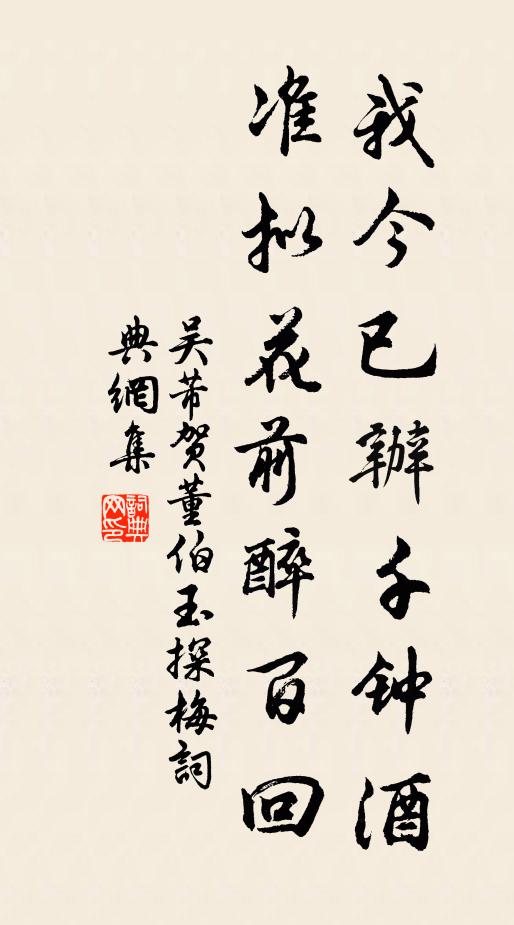 我今已辦千钟酒
准拟花前醉百回
吴芾贺董伯玉探梅詞
典網集
詞典網印